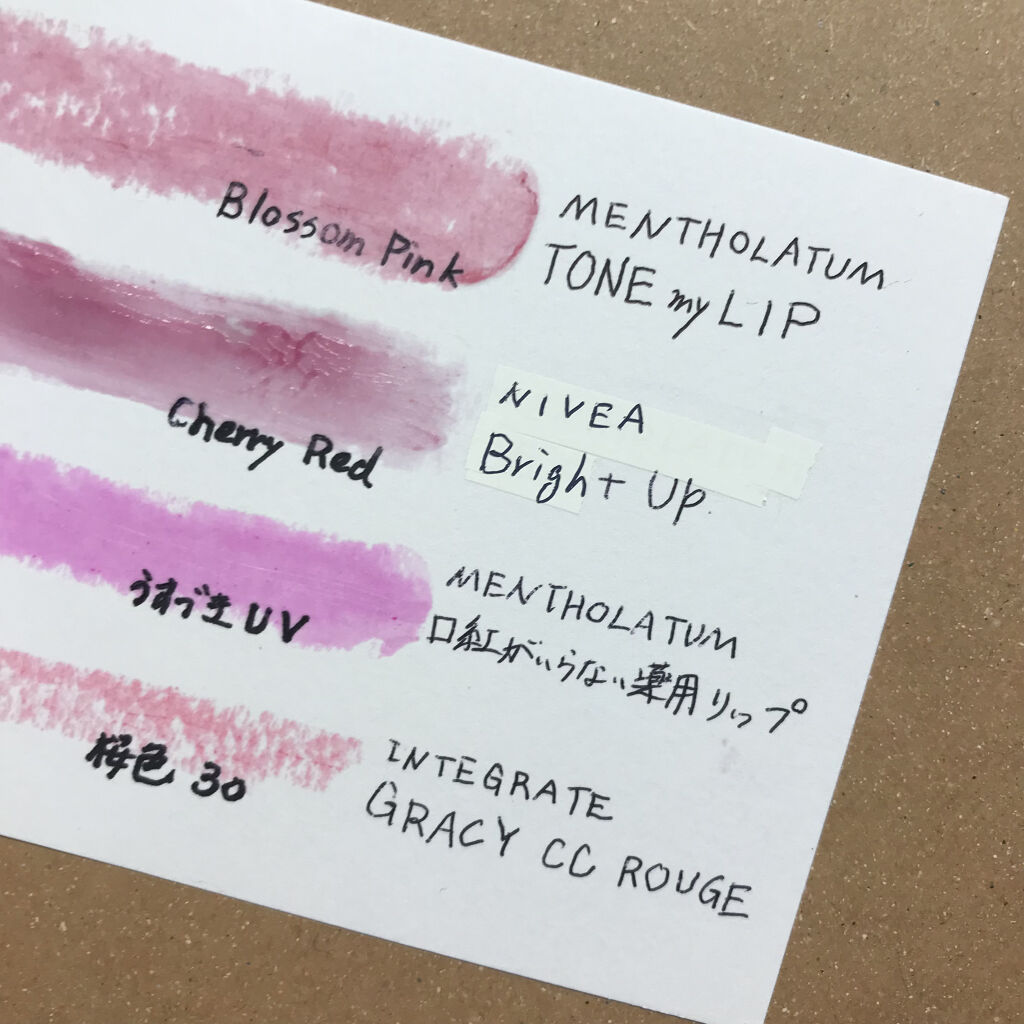 Blossom Pink
MENTHOLATUM
TONE my LIP
Cherry Red
NIVEA
Bright Up
うすづきUV
MENTHOLATUM
口紅がいらない薬用リップ
桜色 30
INTEGRATE
GRACY CC ROUGE